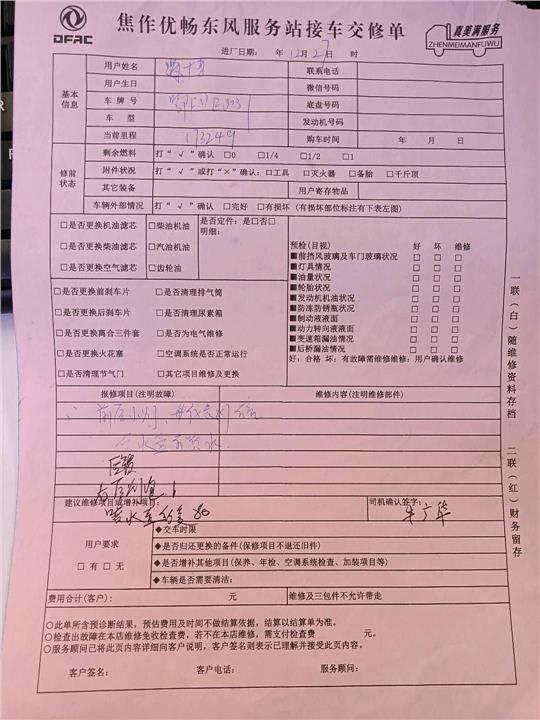 DFAC
焦作优畅东风服务站接车交修单
真美满服务
ZHENMEIMANFUWU
进厂日期: 年 12月 27日 时
基本信息
用户姓名 联系电话
用户生日 微信号码
车 牌 号 底盘号码
车 型 发动机号码
当前里程 113249 购车时间 年 月 日
修前状态
剩余燃料 打“√”确认 □0 □1/4 □1/2 □1
附件状况 打“√”或打“×”确认:□工具 □灭火器 □备胎 □千斤顶
其它装备 用户寄存物品
车辆外部情况 打“√”确认 □完好 □有损坏 (有损坏部位标注有下表左图)
□是否更换机油滤芯 □柴油机油 是否定件: 是□否□
明细:
□是否更换柴油滤芯 □汽油机油
□是否更换空气滤芯 □齿轮油
□是否更换前刹车片 □是否清理排气筒
□是否更换后刹车片 □是否清理尿素箱
□是否更换离合三件套 □是否为电气维修
□是否更换火花塞 □空调系统是否正常运行
□是否清理节气门 □其它项目维修及更换
预检(目视) 好 坏 维修
■前挡风玻璃及车门玻璃状况 □ □ □
■灯具情况 □ □ □
■油量状况 □ □ □
■轮胎状况 □ □ □
■发动机机油状况 □ □ □
■防冻防锈瓶状况 □ □ □
■制动液液面 □ □ □
■动力转向液液面 □ □ □
■变速箱漏油情况 □ □ □
■后桥漏油情况 □ □ □
好:合格 坏:有故障需维修维修:用户确认维修
报修项目(注明故障) 维修内容(注明维修部件)
建议维修项目或增补项目: 司机确认签字:
喷水
用户要求
□ 有 □ 无
◆交车时限
◆是否归还更换的备件(保修项目不退还旧件)
◆是否增补其他项目(保养、年检、空调系统检查、加装项目等)
◆车辆是否需要清洁:
费用合计(客户): 元 维修及三包件不允许带走
○此单所含预诊断结果,预估费用及时间不做结算依据,结算以结算单为准。
○检查出故障在本店维修免收检查费,若不在本店维修,需支付检查费 元。
○服务顾问已将此页内容详细向客户说明,客户签名则表示已理解并接受此页内容。
客户签名: 客户电话: 服务顾问:
一联(白)随维修资料存档 二联(红)财务留存